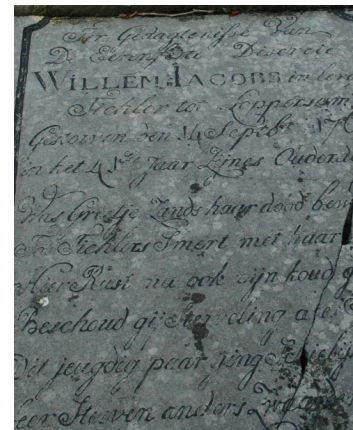 Ter Gedagtenisse Van
De Eersame Discrete
WILLEM IACOBS in leven
Tichler tot Loppersum
Gestorven den 14 Septbr 17
in het 41ste Jaar Zines Ouderd
Was Grietje Zands haar dood bew
Tichlers Smert met haar
Hier Rust nu ook zijn koud g
Beschoud gij sterveling
Dit jeugdig paar
Leer Sterven anders